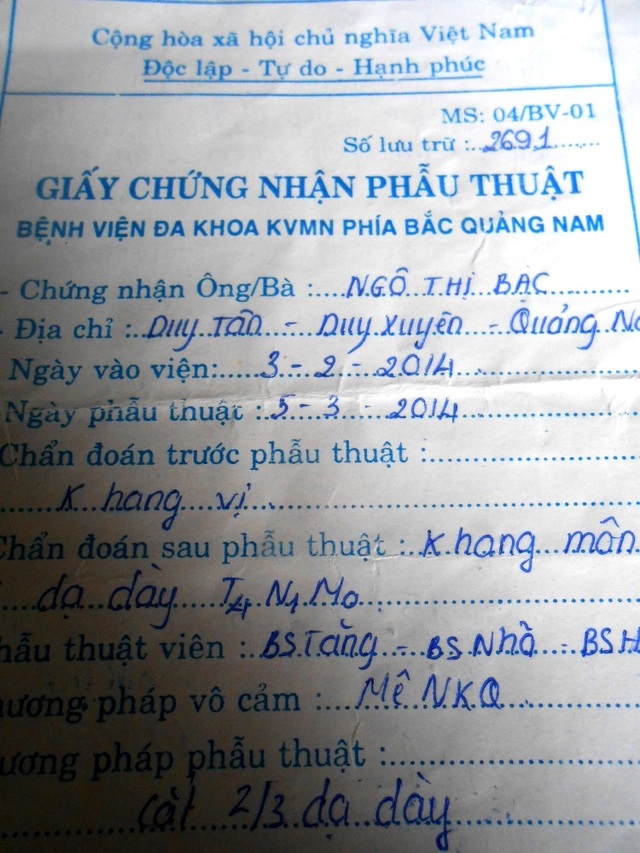 Cộng hòa xã hội chủ nghĩa Việt Nam
Độc lập - Tự do - Hạnh phúc
MS: 04/BV-01
Số lưu trữ : 2691
GIẤY CHỨNG NHẬN PHẪU THUẬT
BỆNH VIỆN ĐA KHOA KVMN PHÍA BẮC QUẢNG NAM
- Chứng nhận Ông/Bà : NGÔ THỊ BẠC
- Địa chỉ : Duy Tân - Duy Xuyên - Quảng
Ngày vào viện: 3-2-2014
Ngày phẫu thuật : 5-3-2014
Chẩn đoán trước phẫu thuật :
K hang vị
Chẩn đoán sau phẫu thuật : K hang môn
dạ dày T4 N1 M0
hẫu thuật viên : BS Tăng - BS Nhò - BS H
hương pháp vô cảm : Mê NKQ
ương pháp phẫu thuật :
Cắt 2/3 dạ dày